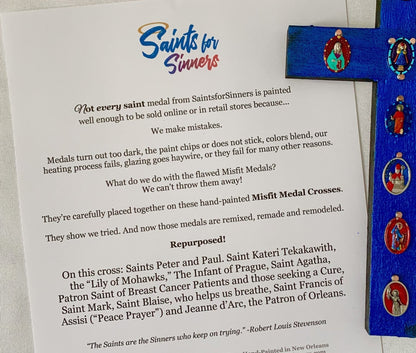 Saints for
Sinners
Not every saint medal from SaintsforSinners is painted
well enough to be sold online or in retail stores because...
We make mistakes.
Medals turn out too dark, the paint chips or does not stick, colors blend, our
heating process fails, glazing goes haywire, or they fail for many other reasons.
What do we do with the flawed Misfit Medals?
We can't throw them away!
They're carefully placed together on these hand-painted Misfit Medal Crosses.
They show we tried. And now those medals are remixed, remade and remodeled.
Repurposed!
On this cross: Saints Peter and Paul. Saint Kateri Tekakawith,
the “Lily of Mohawks,” The Infant of Prague, Saint Agatha,
Patron Saint of Breast Cancer Patients and those seeking a Cure,
Saint Mark, Saint Blaise, who helps us breathe, Saint Francis of
Assisi (“Peace Prayer”) and Jeanne d’Arc, the Patron of Orleans.
"The Saints are the Sinners who keep on trying." -Robert Louis Stevenson
Hand-Painted in New Orleans